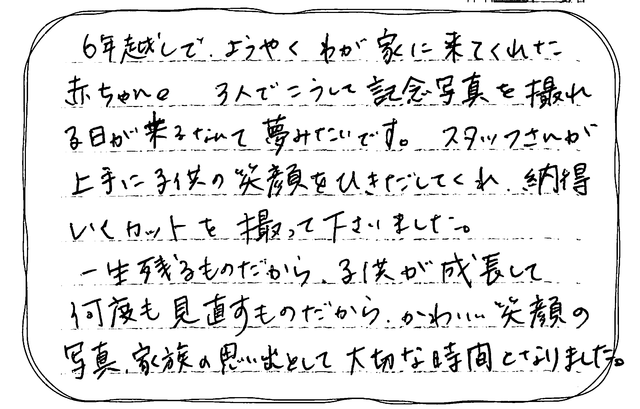 6年越しで、ようやくわが家に来てくれた
赤ちゃん。 3人でこうして記念写真を撮れ
る日が来るなんて夢みたいです。 スタッフさんが
上手に子供の笑顔をひきだしてくれ、納得
いくカットを撮って下さいました。
一生残るものだから、子供が成長して
何度も見直すものだから、かわいい笑顔の
写真、家族の思い出として大切な時間となりました。